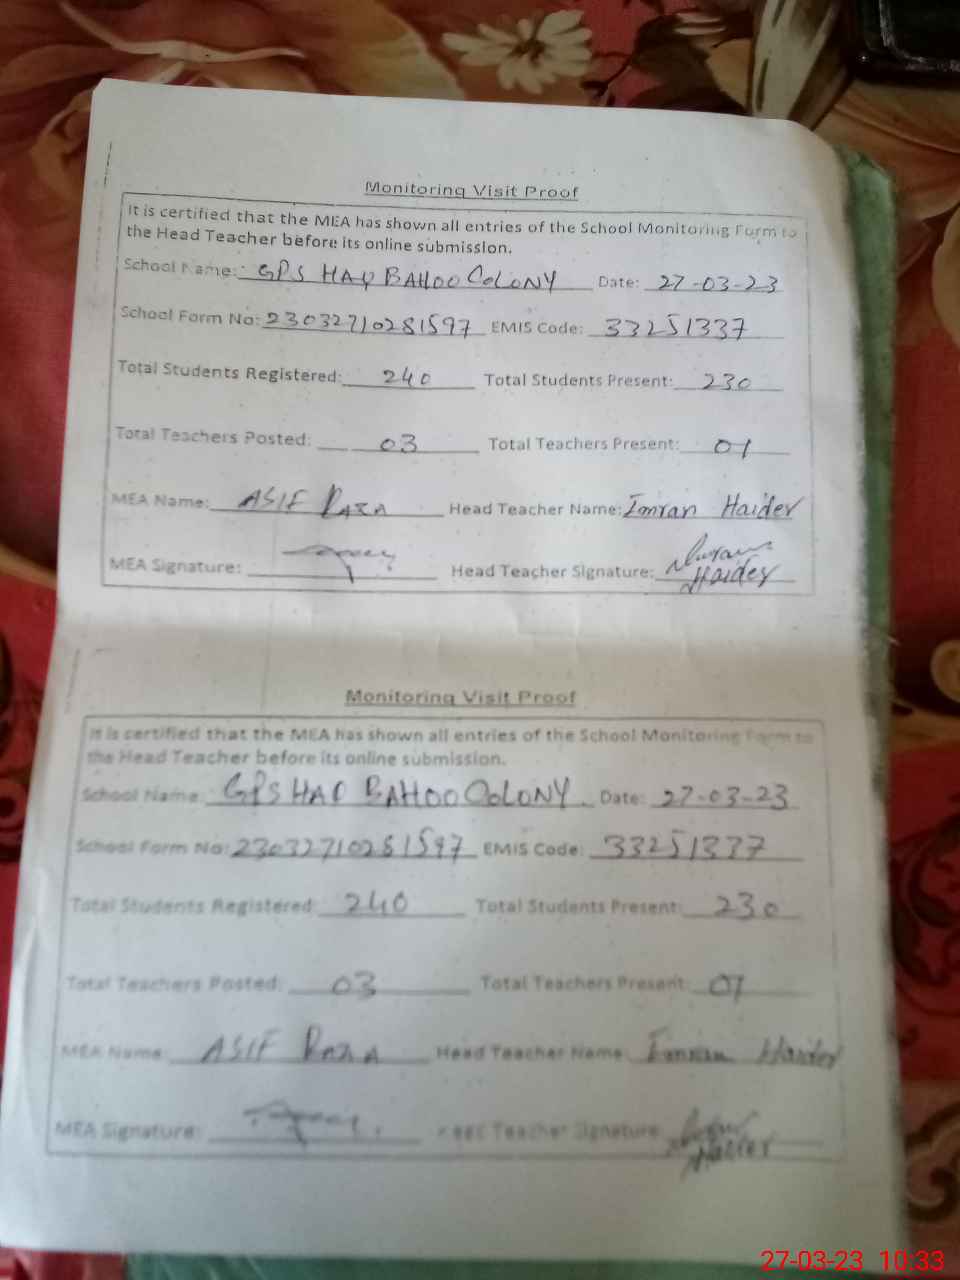 Monitoring Visit Proof
It is certified that the MEA has shown all entries of the School Monitoring Form to
the Head Teacher before its online submission.
School Name: GPS HAQ BAHOO COLONY Date: 27-03-23
School Form No: 23032710281597 EMIS Code: 33251337
Total Students Registered: 240 Total Students Present: 230
Total Teachers Posted: 03 Total Teachers Present: 01
MEA Name: ASIF RAZA Head Teacher Name: Imran Haider
MEA Signature: Head Teacher Signature: Imran
Haider
Monitoring Visit Proof
It is certified that the MEA has shown all entries of the School Monitoring Form to
the Head Teacher before its online submission.
School Name: GPS HAQ BAHOO COLONY Date: 27-03-23
School Form No: 23032710281597 EMIS Code: 33251337
Total Students Registered: 240 Total Students Present: 230
Total Teachers Posted: 03 Total Teachers Present: 01
MEA Name: ASIF RAZA Head Teacher Name: Imran Haider
MEA Signature: Head Teacher Signature: Imran
Haider
27-03-23 10:33